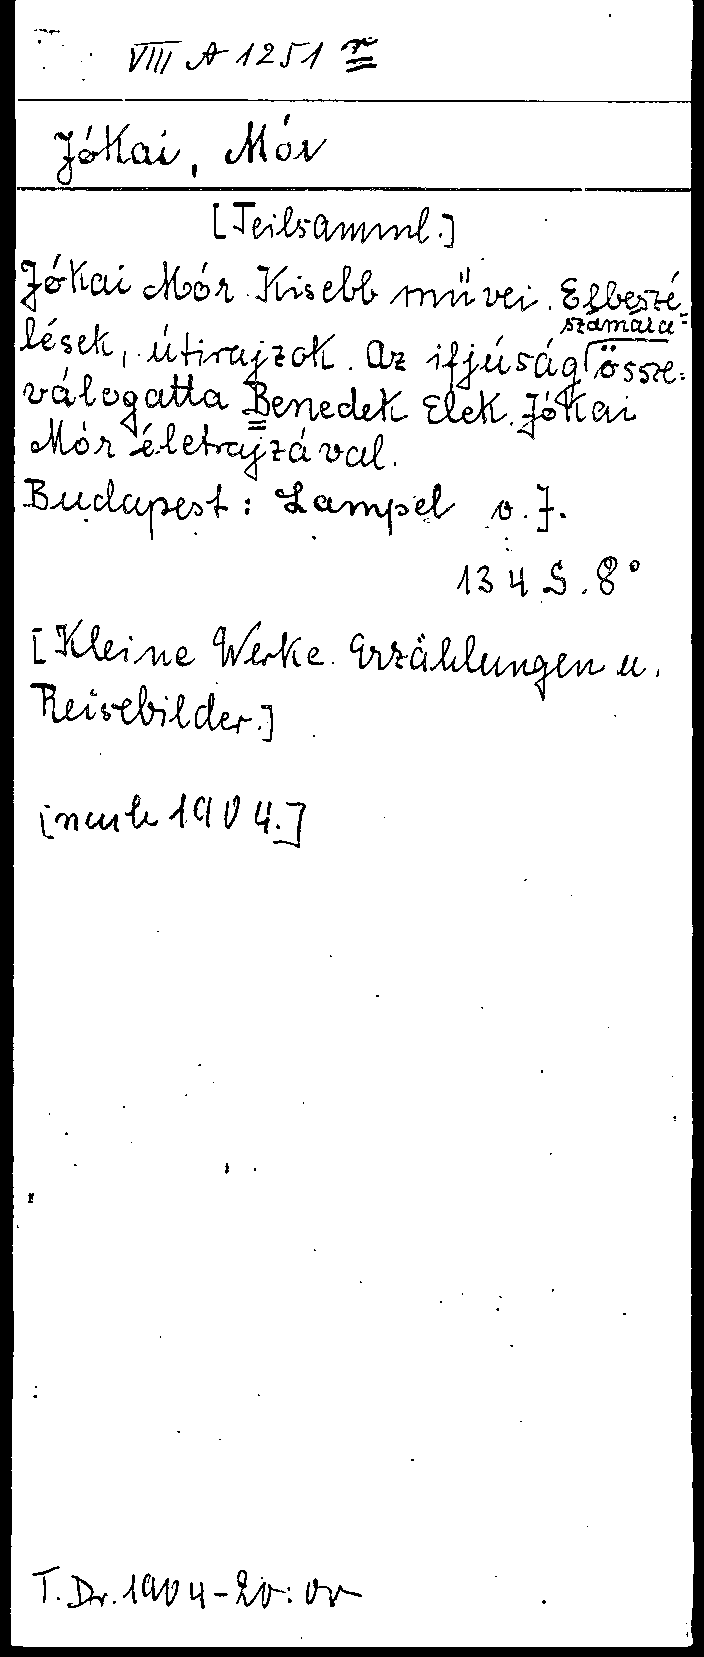 VIII A 1251 r
Jókai, Mór
[Teilsamml.]
Jókai Mór Kisebb művei. Elbeszé-
lések, útirajzok. Az ifjúság számára össze-
válogatta Benedek Elek. Jókai
Mór életrajzával.
Budapest: Lampel o.J.
134 S. 8°
[Kleine Werke. Erzählungen u.
Reisebilder.]
1904.]
T. Dr. 1904-20: